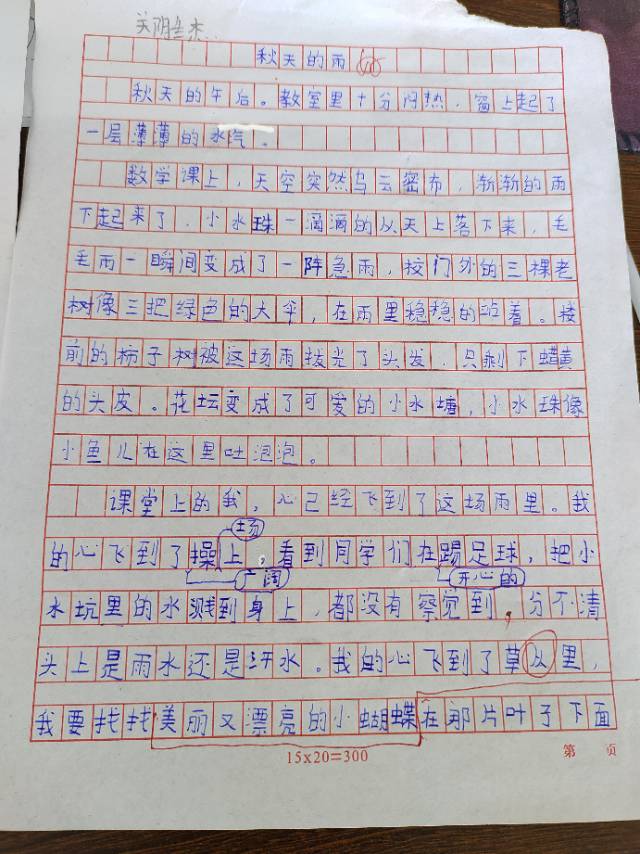 关阴
秋天的雨
秋天的午后。教室里十分闷热，窗上起了
一层薄薄的水汽。
数学课上，天空突然乌云密布，渐渐的雨
下起来了，小水珠一滴滴的从天上落下来，毛
毛雨一瞬间变成了一阵急雨，校门外的三棵老
树像三把绿色的大伞，在雨里稳稳的站着。楼
前的柿子树被这场雨拔光了头发，只剩下蜡黄
的头皮。花坛变成了可爱的小水塘，小水珠像
小鱼儿在这里吐泡泡。
课堂上的我，心已经飞到了这场雨里。我
场
的心飞到了操上，看到同学们在踢足球，把小
广阔 开心的
水坑里的水溅到身上，都没有察觉到，分不清
头上是雨水还是汗水。我的心飞到了草从里，
我要找找美丽又漂亮的小蝴蝶在那片叶子下面
15x20=300 第 页